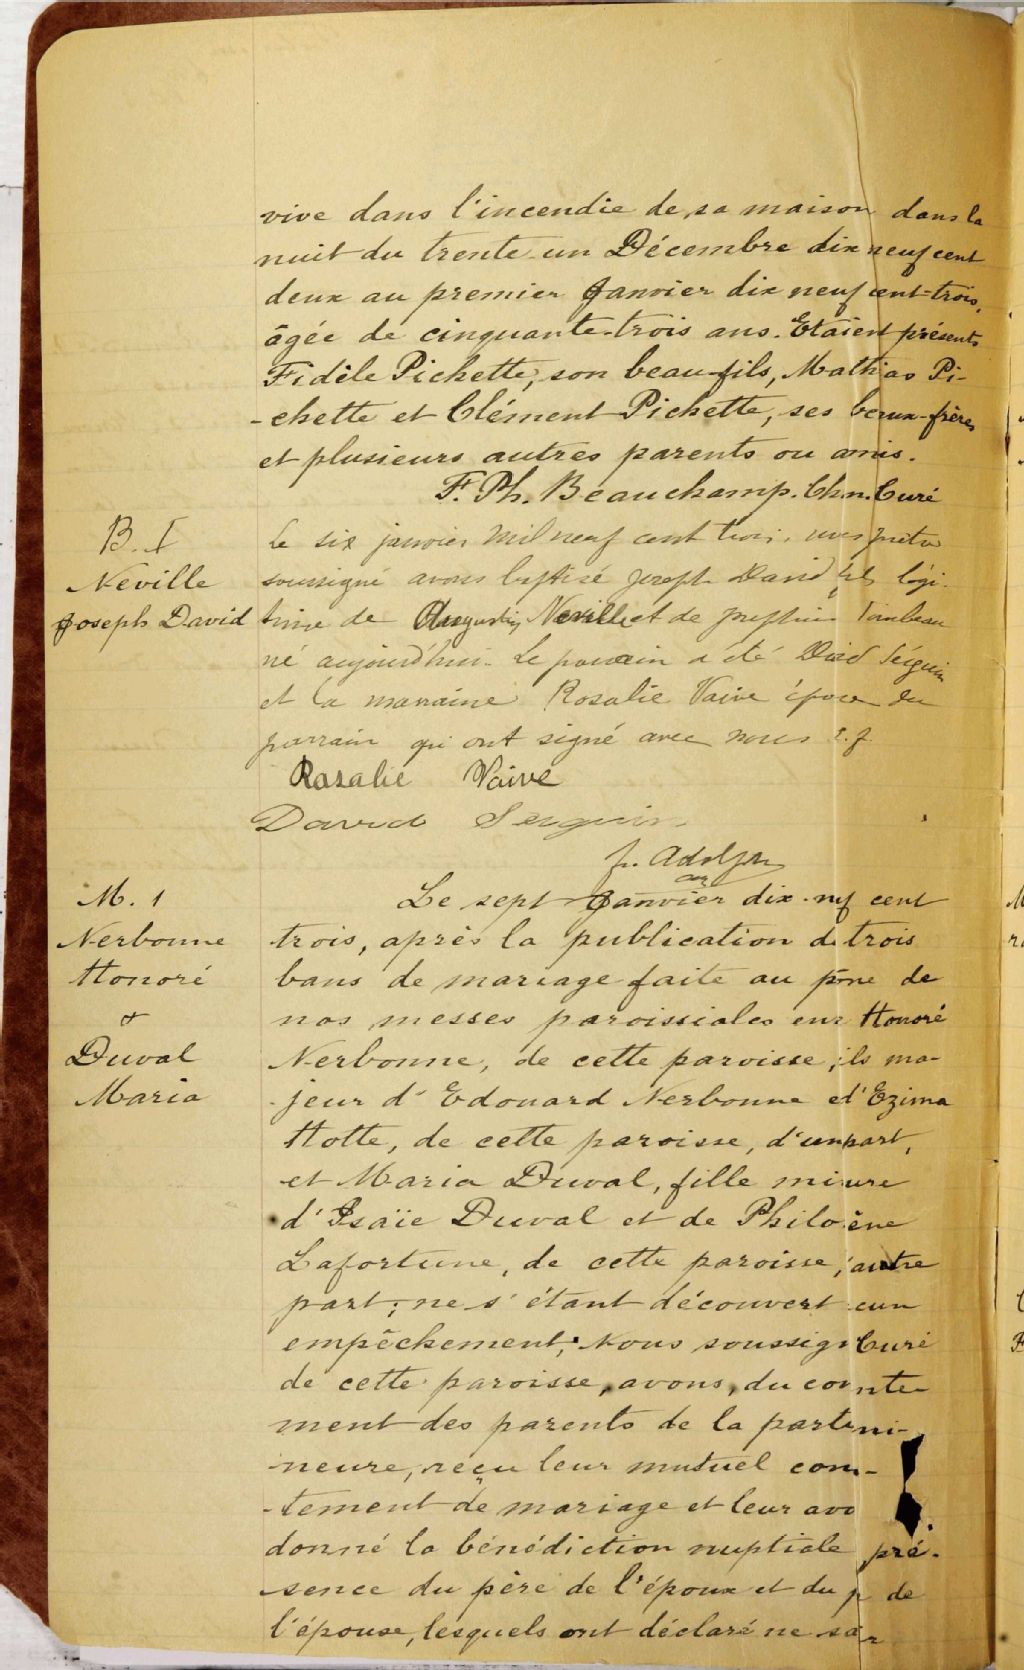 vive dans l'incendie de sa maison dans la
nuit du trente un Décembre dix neuf cent
deux au premier Janvier dix neuf cent-trois,
âgée de cinquante-trois ans. Etaient présents
Fidèle Pichette, son beau-fils, Mathias Pi-
-chette et Clément Pichette, ses beaux-frères
et plusieurs autres parents ou amis.
F. Ph. Beauchamp. Chn. Curé
B. 1
Neville
Joseph David
Le six janvier mil neuf cent trois, nous prêtre
soussigné avons baptisé Joseph David fils légi-
time de Augustin Neville et de Josephine Tombeau
né aujourd'hui. Le parrain a été David Séguin
et la marraine Rosalie Vaive épouse du
parrain qui ont signé avec nous
Rosalie Vaive
David Seguin
M. 1
Nerbonne
Honoré
&
Duval
Maria
Le sept Janvier dix-nf cent
trois, après la publication d trois
bans de mariage faite au pône de
nos messes paroissiales en Honoré
Nerbonne, de cette paroisse, ils ma-
-jeur d'Edouard Nerbonne et d'Ezima
Hotte, de cette paroisse, d'un part,
et Maria Duval, fille mineure
d'Isaïe Duval et de Philomène
Lafortune, de cette paroisse, autre
part; ne s'étant découvert cun
empêchement; Nous soussign Curé
de cette paroisse, avons, du con nte-
ment des parents de la parti mi-
-neure, reçu leur mutuel con-
-tement de mariage et leur avo
donné la bénédiction nuptiale pré-
-sence du père de l'époux et du p de
l'épouse, lesquels ont déclaré ne sa r